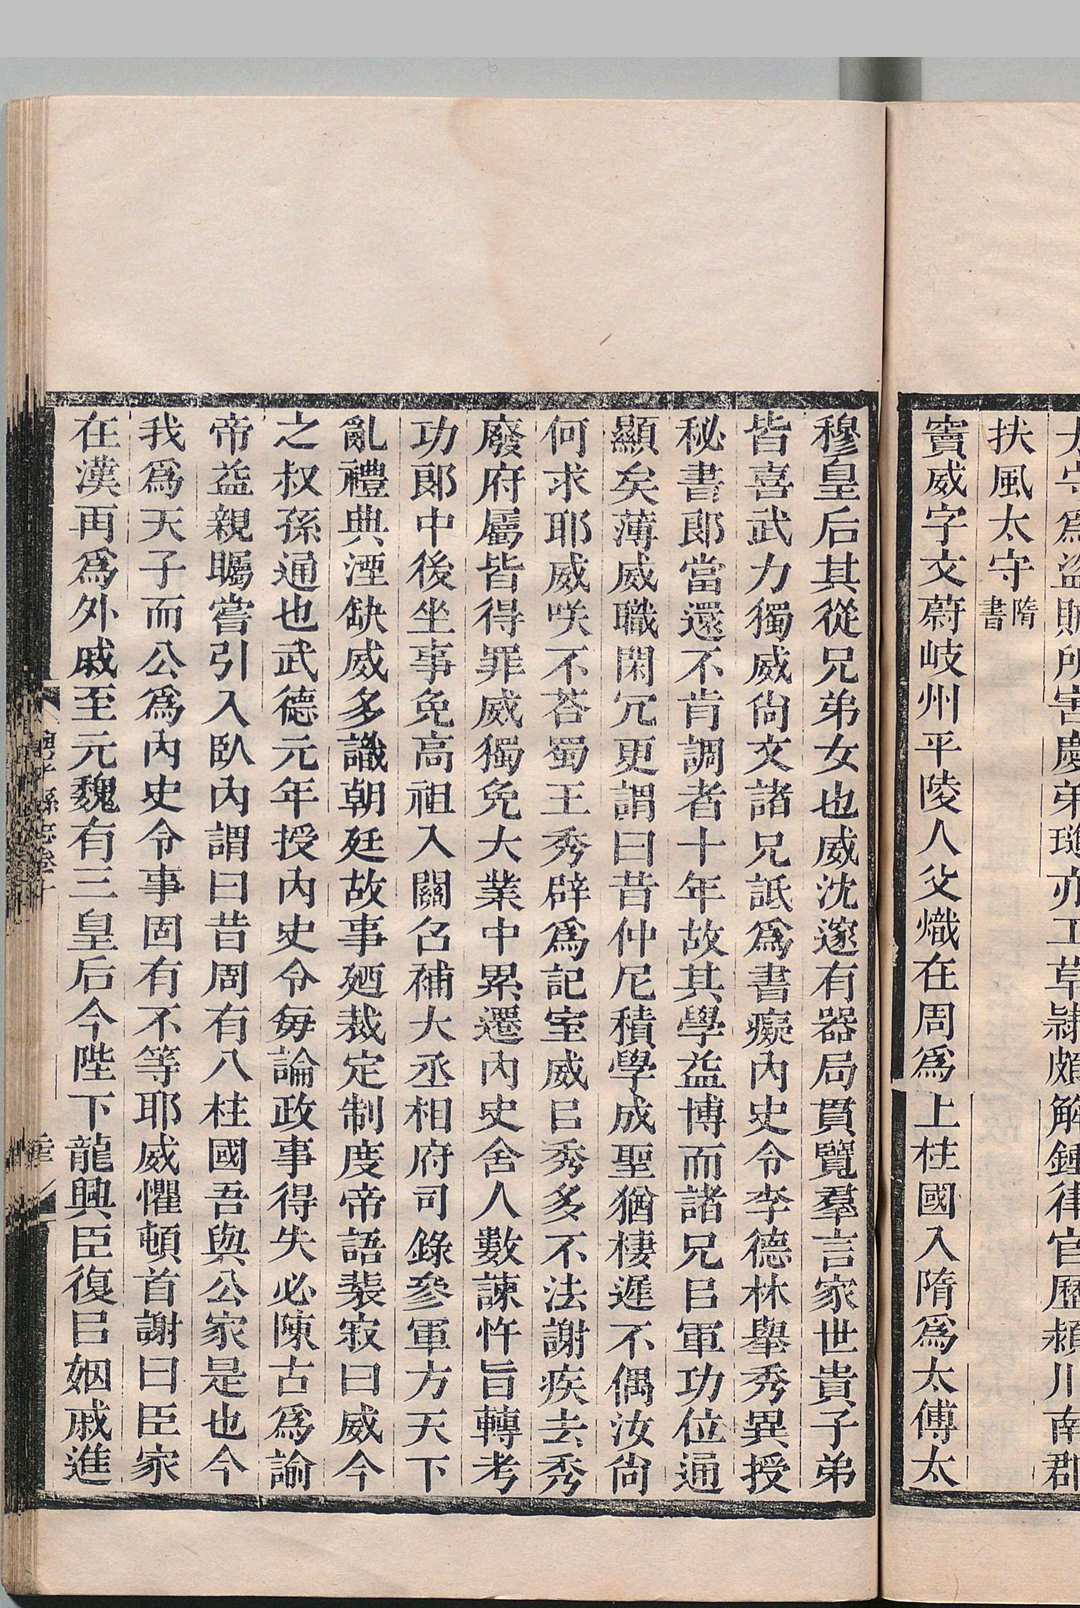 太守爲盜賊所害慶弟璡亦工草隸頗解鍾律官歷潁川南郡
扶風太守隋書
竇威字文蔚岐州平陵人父熾在周爲上柱國入隋爲太傅太
穆皇后其從兄弟女也威沈邃有器局貫覽羣言家世貴子弟
皆喜武力獨威尙文諸兄詆爲書癡內史令李德林舉秀異授
秘書郎當還不肯調者十年故其學益博而諸兄㠯軍功位通
顯矣薄威職閑冗更謂曰昔仲尼積學成聖猶棲遲不偶汝尙
何求耶威咲不荅蜀王秀辟爲記室威㠯秀多不法謝疾去秀
廢府屬皆得罪威獨免大業中累遷內史舍人數諫忤旨轉考
功郎中後坐事免高祖入關召補大丞相府司錄參軍方天下
亂禮典湮缺威多識朝廷故事廼裁定制度帝語裴寂曰威今
之叔孫通也武德元年授內史令每論政事得失必陳古爲諭
帝益親矚嘗引入臥內謂曰昔周有八柱國吾與公家是也今
我爲天子而公爲內史令事固有不等耶威懼頓首謝曰臣家
在漢再爲外戚至元魏有三皇后今陛下龍興臣復㠯姻戚進